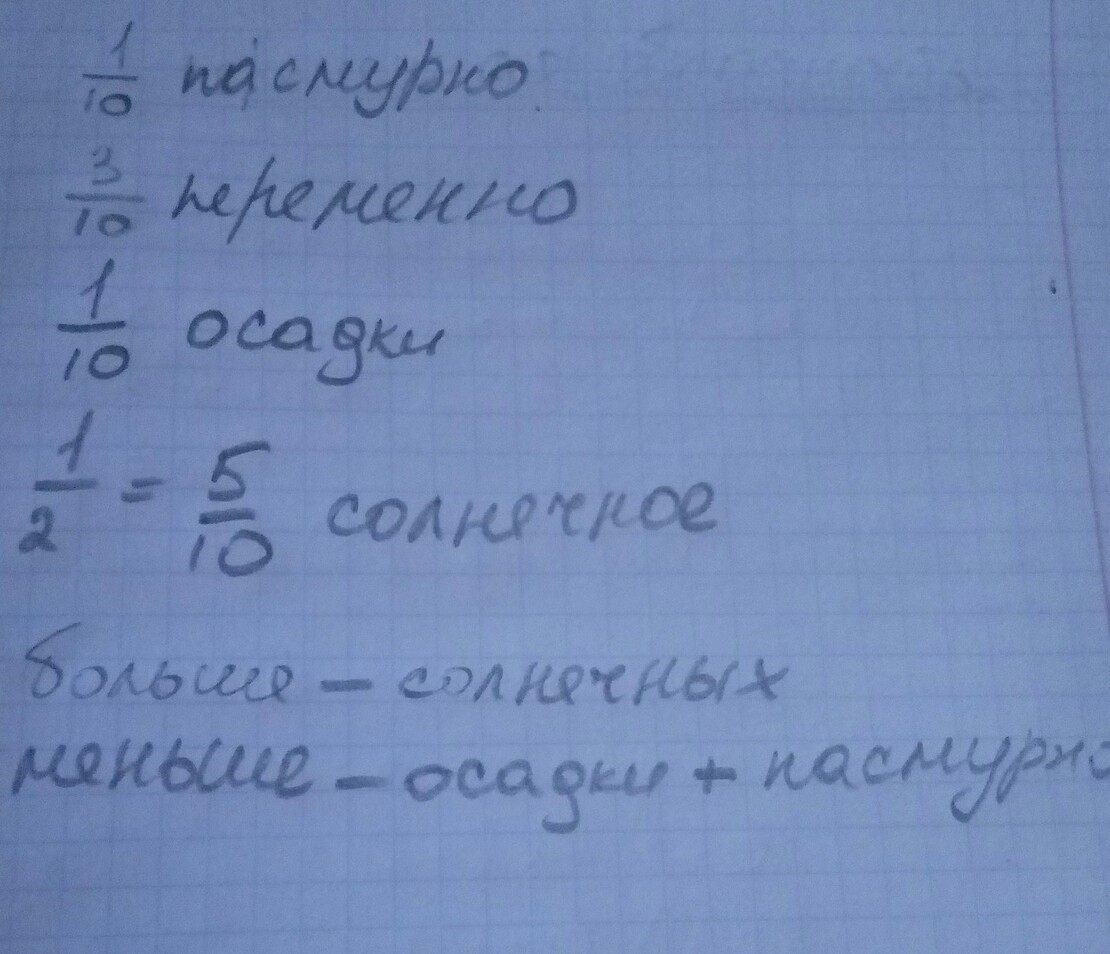 1/10 пасмурно
3/10 переменно
1/10 осадки
1/2 = 5/10 солнечное
больше - солнечных
меньше - осадки + пасмурно